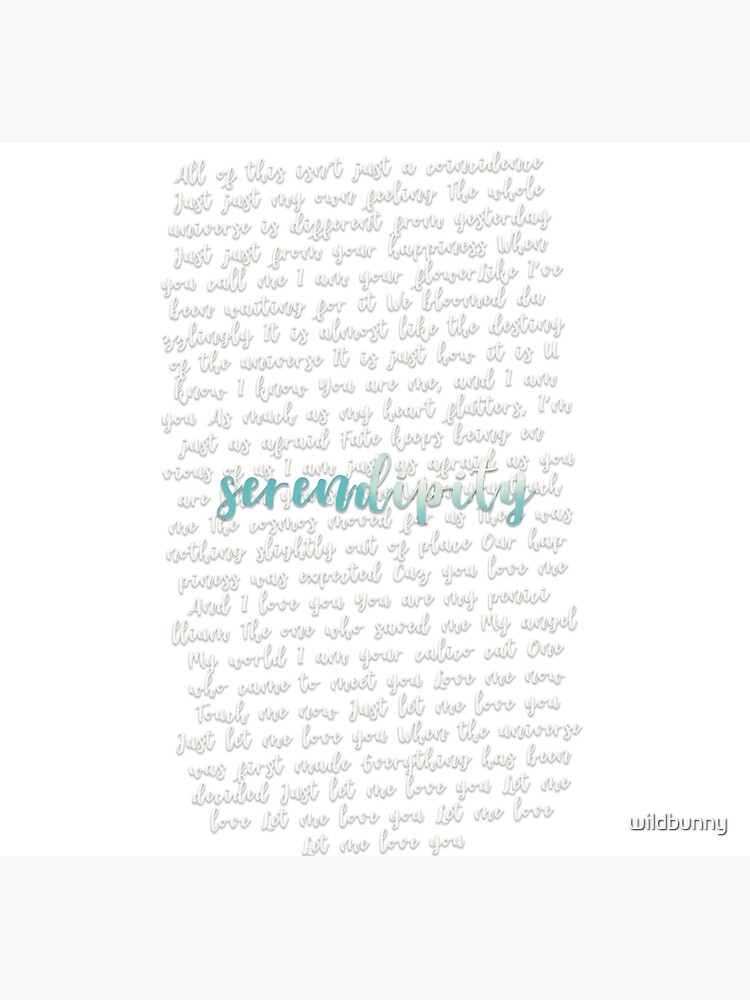 All of this isn't just a coincidence
Just just my own feeling The whole
universe is different from yesterday
Just just from your happiness When
you call me I am your flowerLike I've
been waiting for it We bloomed da
zzlingly It is almost like the destiny
of the universe It is just how it is U
Know I know You are me, and I am
you As much as my heart flutters, I'm
just as afraid Fate keeps being en
vious of us I am just as afraid as you
are
serendipity
me The cosmos moved for us There was
nothing slightly out of place Our hap
piness was expected Cuz you love me
And I love you You are my penici
llium The one who saved me My angel
My world I am your calico cat One
who came to meet you Love me now
Touch me now Just let me love you
Just let me love you When the universe
was first made Everything has been
decided Just let me love you Let me
love Let me love you Let me love
Let me love you
wildbunny